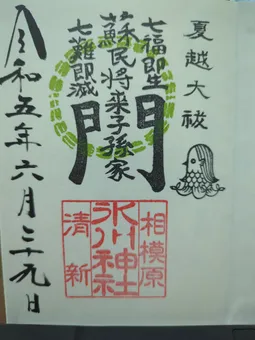 夏越大祓
七福即生
蘇民将来子孫家門
七難即滅
相模原
氷川神社
清新
令和五年六月二十九日